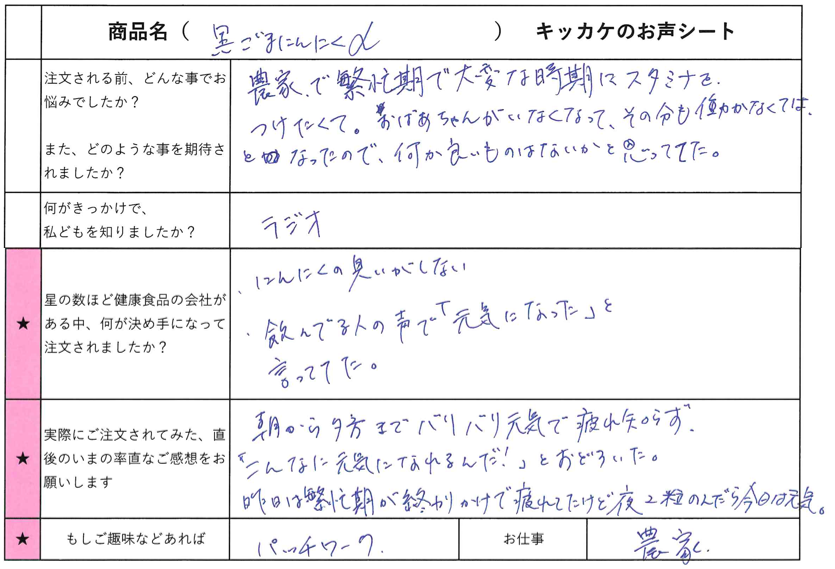 商品名（ 黒ごまにんにくα ） キッカケのお声シート
注文される前、どんな事でお
悩みでしたか？
また、どのような事を期待さ
れましたか？
農家で繁忙期で大変な時期にスタミナを
つけたくて。おばあちゃんがいなくなって、その分も働かなくては、
となったので、何か良いものはないかと思ってた。
何がきっかけで、
私どもを知りましたか？
ラジオ
★
星の数ほど健康食品の会社が
ある中、何が決め手になって
注文されましたか？
・にんにくの臭いがしない
・飲んでる人の声で「元気になった」と
言ってた。
★
実際にご注文されてみた、直
後のいまの率直なご感想をお
願いします
朝から夕方までバリバリ元気で疲れ知らず。
「こんなに元気になれるんだ！」とおどろいた。
昨日は繁忙期が終わりかけで疲れてたけど夜2粒のんだら今日は元気。
★ もしご趣味などあれば パッチワーク. お仕事 農家.